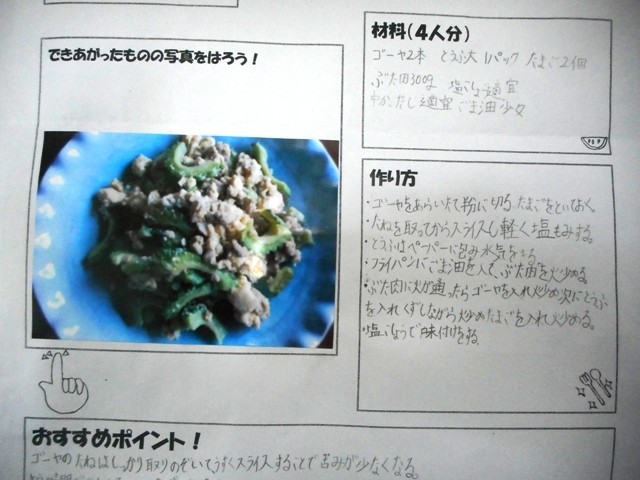 できあがったものの写真をはろう！
材料(4人分)
ゴーヤ2本 とうふ大1パック たまご2個
ぶた肉300g 塩こしょう適宜
だし適宜 ごま油少々
作り方
・ゴーヤをあらいたて に切る。たまごをといておく。
・たねを取ってからスライスし軽く塩もみする。
・とうふはペーパーに包み水気をきる
・フライパンにごま油を入れ、ぶた肉を火少める。
・ぶた肉に火が通ったらゴーヤを入れ炒め次にとうふ
を入れくずしながら炒めたまごを入れ炒める。
・塩こしょうで味付けをする。
おすすめポイント！
ゴーヤのたねはしっかり取りのぞいてうすくスライスすることで苦みが少なくなる。